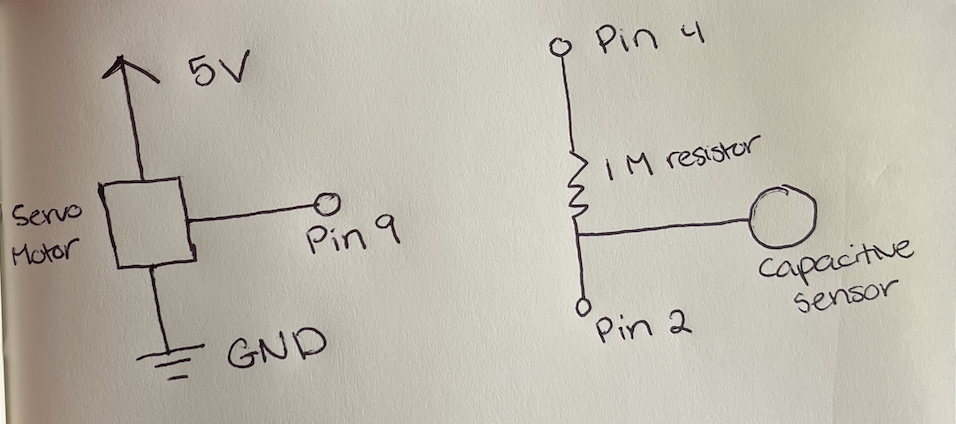 5V
Servo
Motor
Pin 9
GND
Pin 4
1 M resistor
Capacitive
Sensor
Pin 2